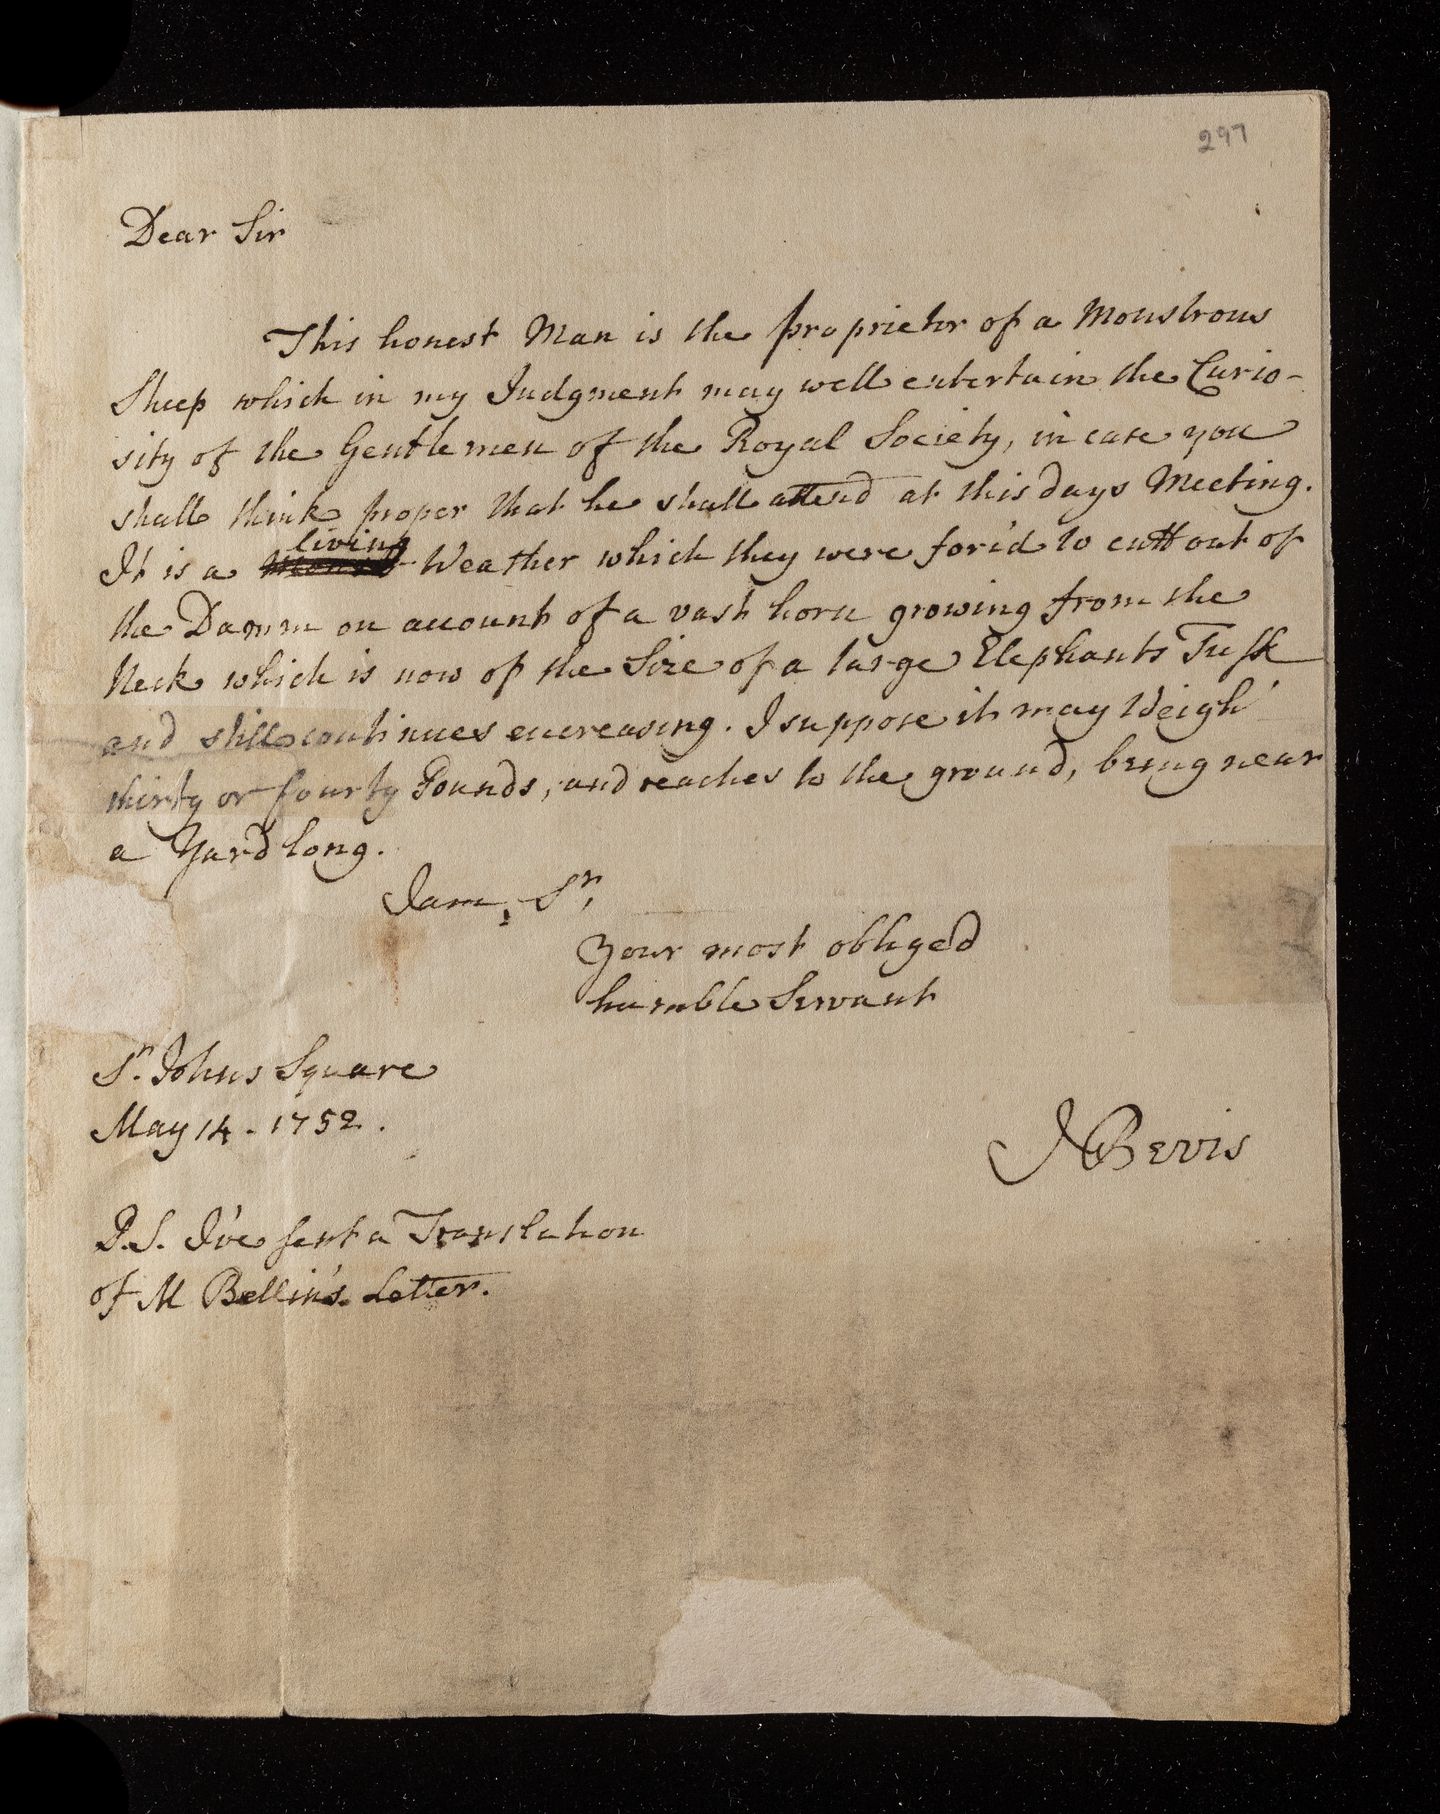 297
Dear Sir
This honest Man is the proprietor of a Monstrous
Sheep which in my Judgment may well entertain the Curio-
sity of the Gentlemen of the Royal Society, in case you
shall think proper that he shall attend at this days Meeting.
living
It is a Weather which they were forc'd to cutt out of
the Damm on account of a vast horn growing from the
Neck which is now of the Size of a large Elephants Tusk
and still continues encreasing. I suppose it may Weigh
thirty or fourty Pounds, and reaches to the ground, being near
a Yard long.
I am, Sr,
Your most obliged
humble Servant
St. Johns Square
May 14. 1752.
JBevis
P.S. I've sent a Translation
of M Bellin's Letter.